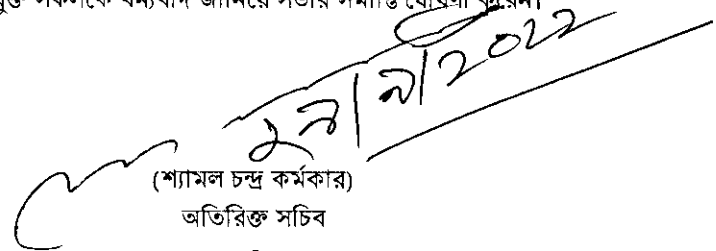 সকলকে ধন্যবাদ জানিয়ে সভার সমাপ্তি ঘোষণা করেন।
(শ্যামল চন্দ্র কর্মকার)
অতিরিক্ত সচিব